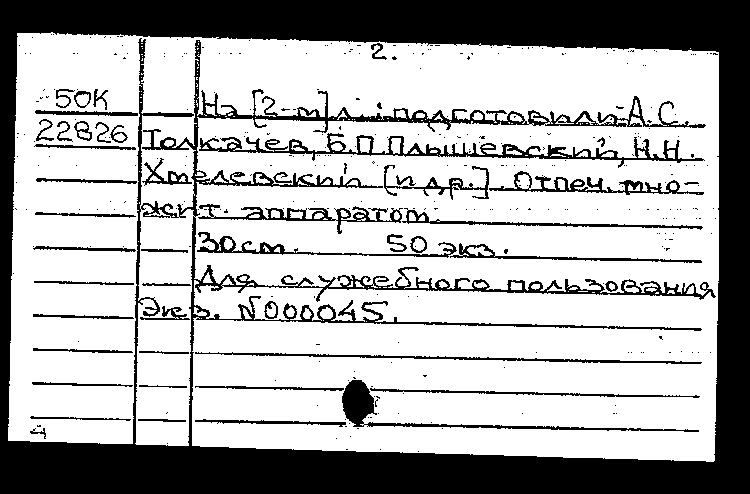 2.
50К На [2-м] л.: подготовили А.С.
22826 Толкачев, Б.П Плышевский, Н.Н.
Хмелевский [и др.]. Отпеч. мно-
жит. аппаратом.
30 см. 50 экз.
Для служебного пользования
Экз. N000045.